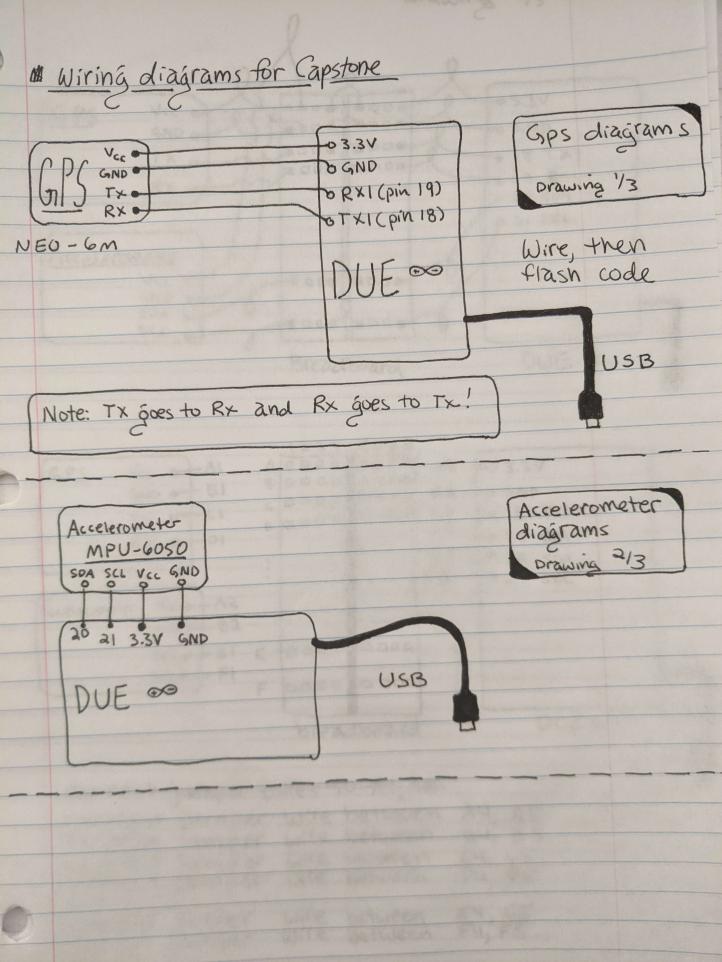 Wiring diagrams for Capstone
GPS
Vcc
GND
Tx
RX
NEO-6M
3.3V
GND
RX1 (pin 19)
TX1 (pin 18)
DUE ∞
Gps diagrams
Drawing 1/3
Wire, then
flash code
USB
Note: Tx goes to Rx and Rx goes to Tx!
Accelerometer
MPU-6050
SDA SCL Vcc GND
20 21 3.3V GND
DUE ∞
USB
Accelerometer
diagrams
Drawing 2/3